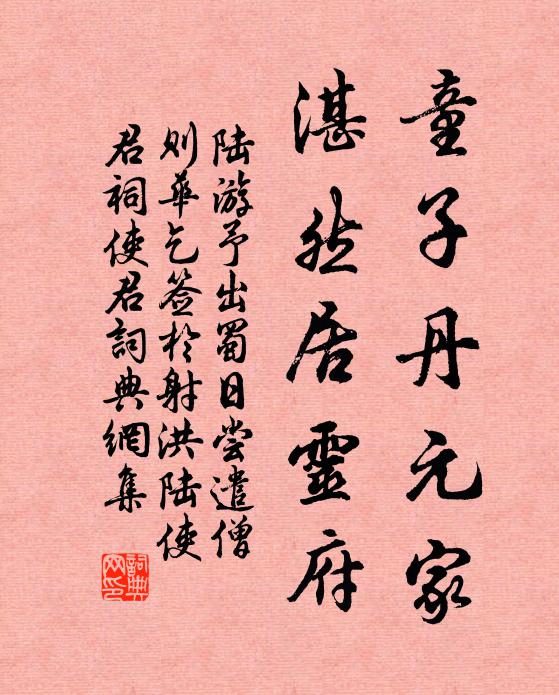 童子丹元家
湛然居靈府
陆游予出蜀日尝遣僧
则华乞签於射洪陆使
君祠使君詞典網集
詞典
网印